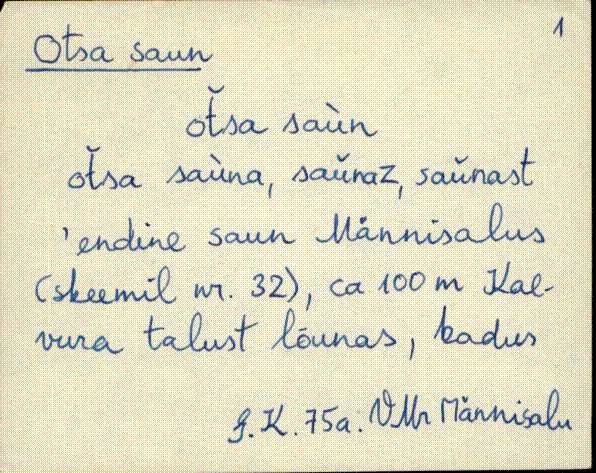 1
Otsa saun
ot̆sa saùn
ot̆sa saùna, saŭnaz, saŭnast
'endine saun Männisalus
(skeemil nr. 32), ca 100 m Kal-
vura talust lõunas, kadus
J.K. 75a. VMr Männisalu